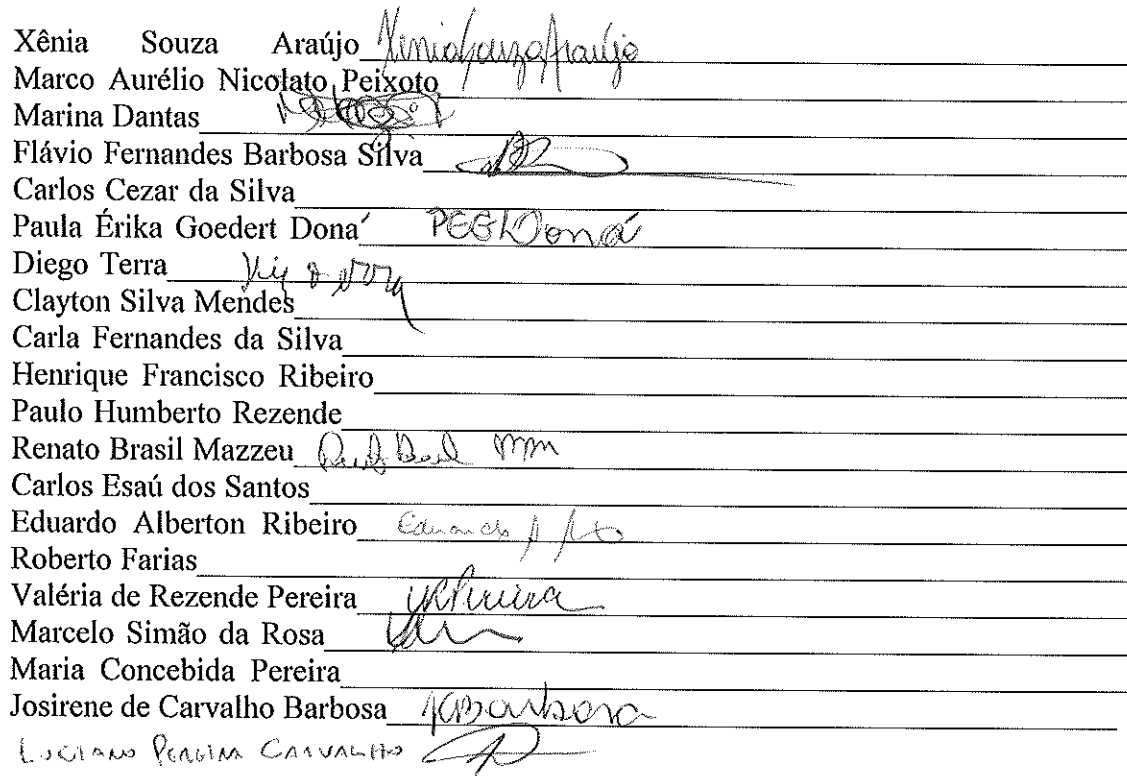 Xênia Souza Araújo Xenia Souza Araújo
Marco Aurélio Nicolato Peixoto
Marina Dantas
Flávio Fernandes Barbosa Silva
Carlos Cezar da Silva
Paula Érika Goedert Doná PEGDoná
Diego Terra
Clayton Silva Mendes
Carla Fernandes da Silva
Henrique Francisco Ribeiro
Paulo Humberto Rezende
Renato Brasil Mazzeu
Carlos Esaú dos Santos
Eduardo Alberton Ribeiro Eduardo A
Roberto Farias
Valéria de Rezende Pereira VRPereira
Marcelo Simão da Rosa
Maria Concebida Pereira
Josirene de Carvalho Barbosa JCBarbosa
LUCIANO PEREIRA CARVALHO